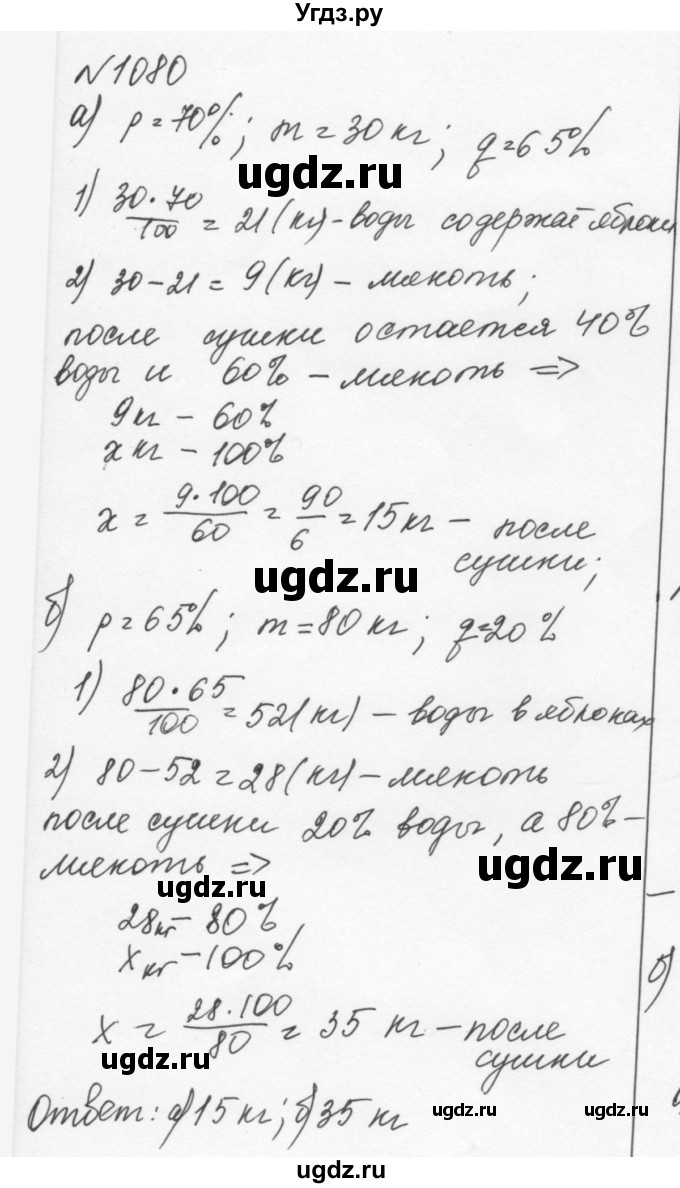 Угдз.ру
N1080
а) p=70%; m=30кг; q=65%
ugdz.ru
1) 30·70/100 = 21(кг)-воды содержат яблоки
2) 30-21=9(кг)-мякоть;
после сушки остается 40%
воды и 60% - мякоть =>
9кг - 60%
x кг - 100%
x = 9·100/60 = 90/6 = 15кг - после
сушки;
ugdz.ru
б) p=65%; m=80кг; q=20%
1) 80·65/100 = 52(кг) - воды в яблоках
2) 80-52=28(кг)-мякоть
после сушки 20% воды, а 80%-
ugdz.ru
мякоть =>
ugdz.ru
28кг - 80%
x кг - 100%
x = 28·100/80 = 35 кг - после
сушки
ugdz.ru
Ответ: а)15кг; б)35кг
ugdz.ru
ugdz.ru
ugdz.ru
б)